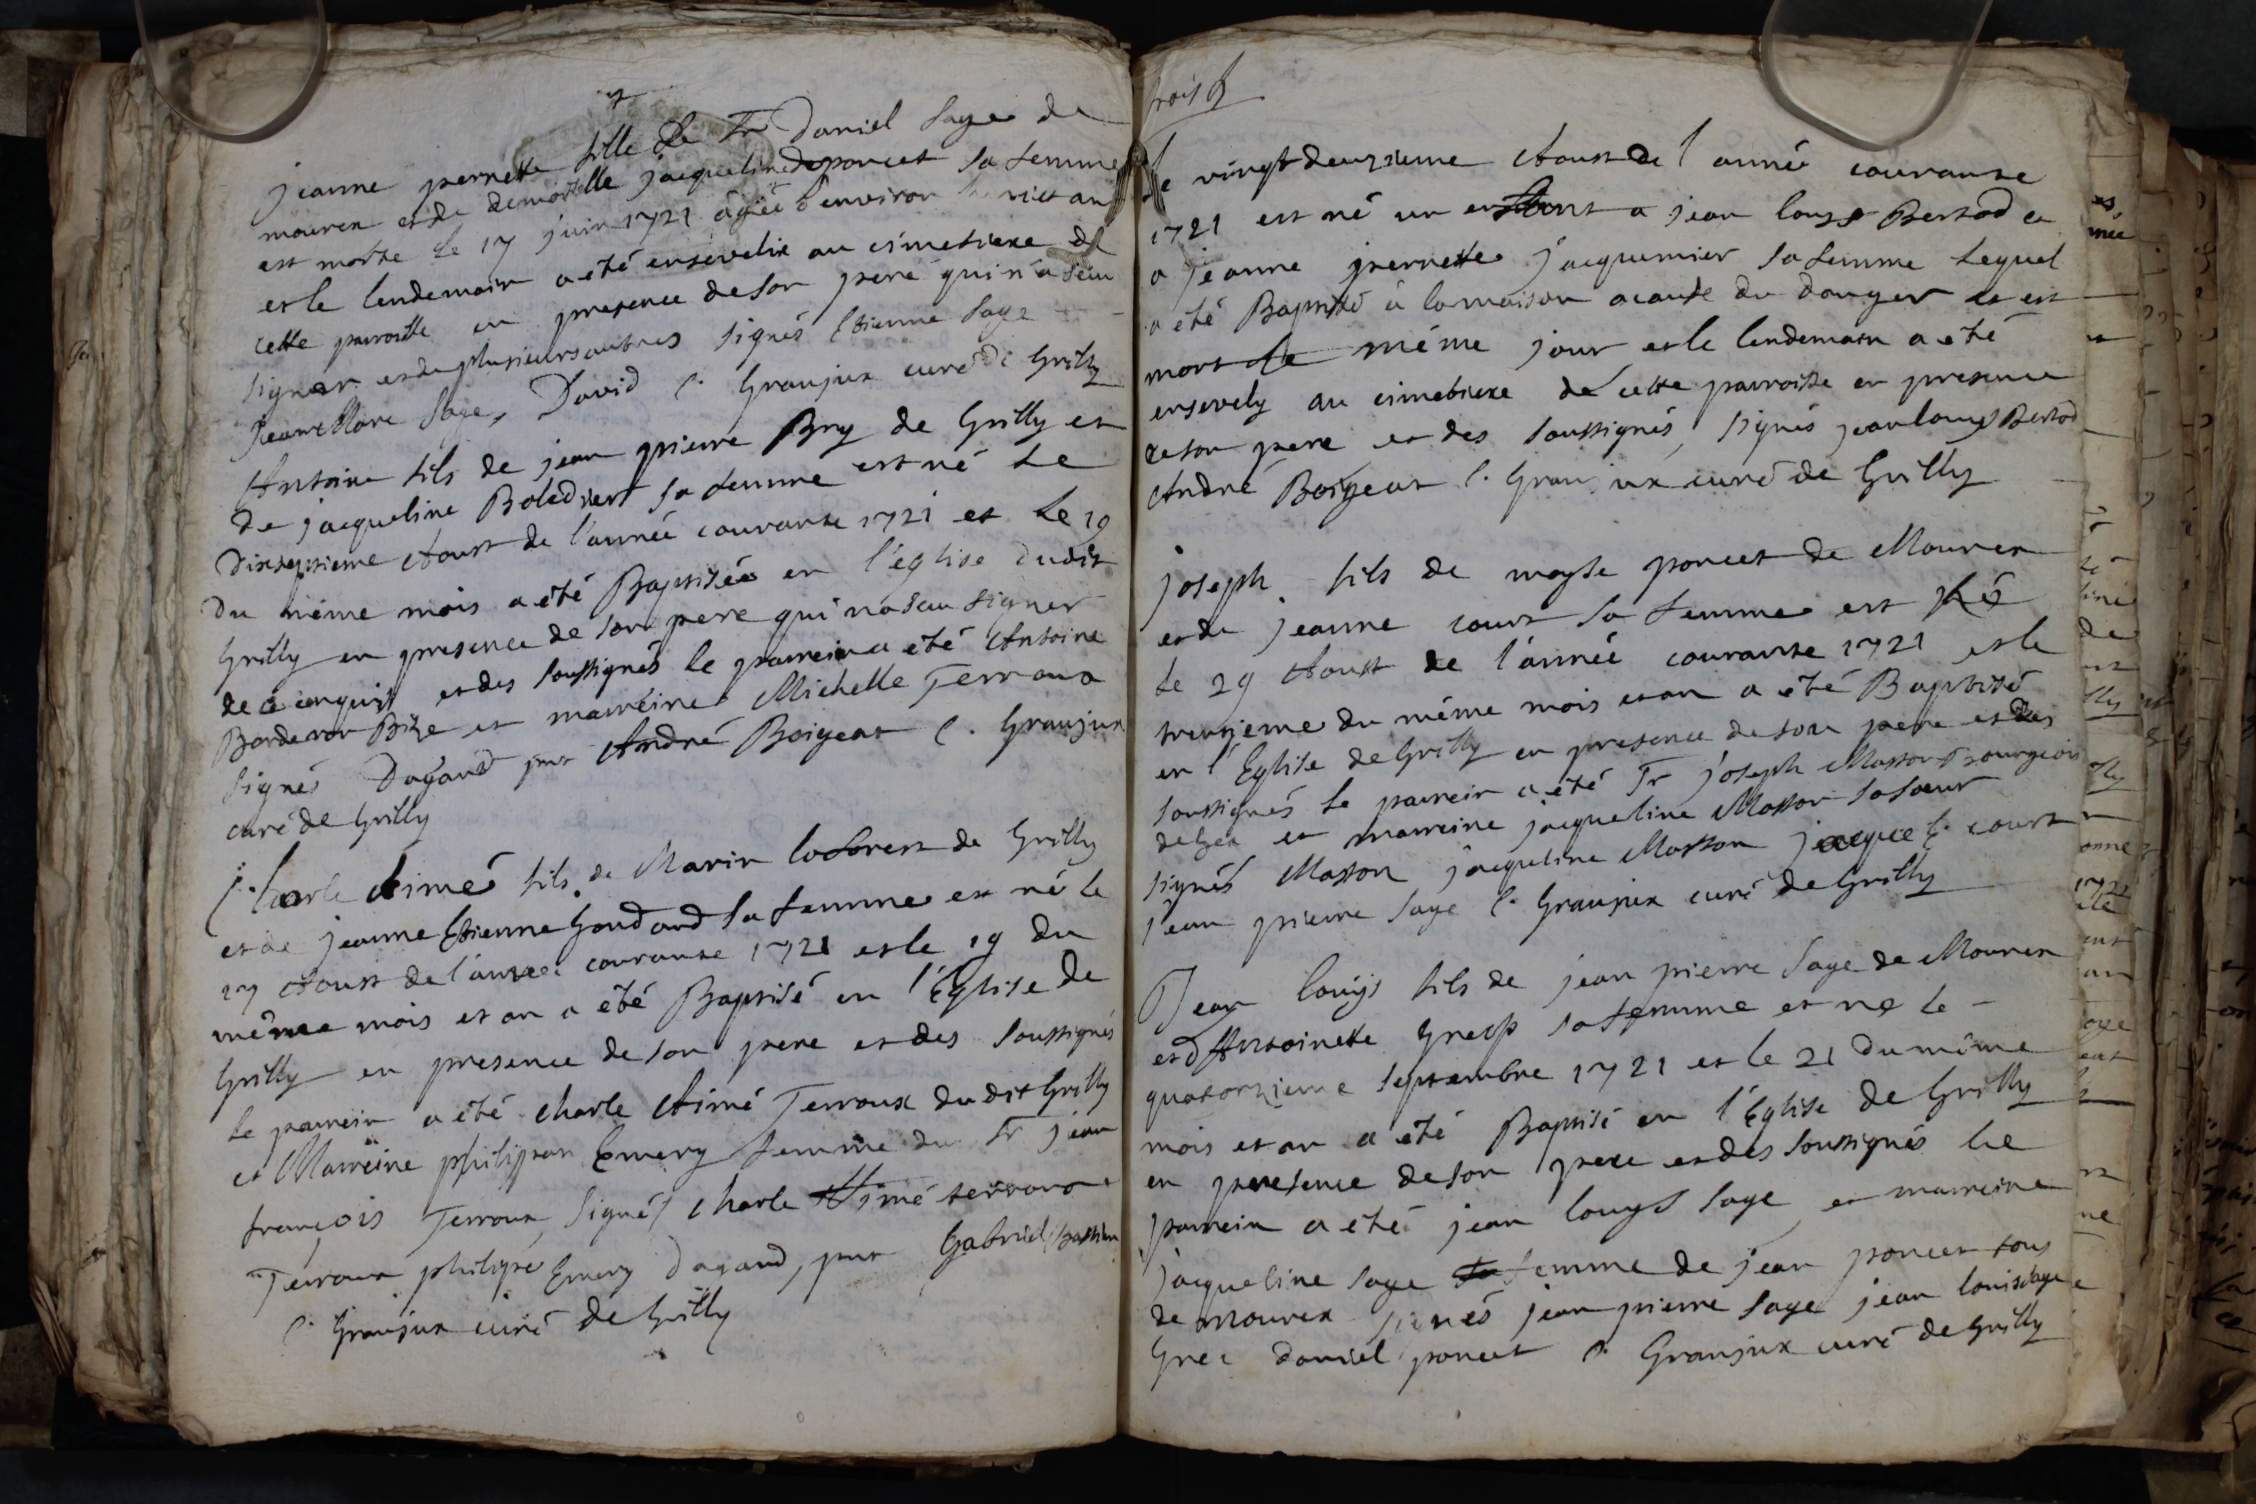 jeanne pernette fille de Sr Daniel Sage de
mourex et de demoiselle jacqueline deponcet sa femme
est morte le 17 juin 1721 âgée d'environ huict an
et le lendemain a été ensevelie au cimetiere de
cette parroisse en presence de son pere qui n'a sceu
signer et de plusieurs autres signés Etienne Sage
jeanettare Sage, David C. Granjux curé de Grilly
Antoine fils de jean pierre Bry de Grilly et
de jacqueline Boledieu sa femme est né le
dixseptieme Aoust de l'année courante 1721 et le 19
du même mois a été Baptisée en l'église dudit
Grilly en presence de son pere qui na sceu signer
de ce enquis et des soussignés le parrein a été Antoine
Borderon Bize et marreine Michelle Terroux
signés Dagand pnt André Boigeat C. Granjux
curé de Grilly
Charle Aimé fils de Marin Lacoren de Grilly
et de jeanne Etienne Goudard sa femme est né le
17 Aoust de l'année courante 1721 et le 19 du
même mois et an a été Baptisé en l'Eglise de
Grilly en presence de son pere et des soussignés
le parrein a été charle Aimé Terroux dudit Grilly
et Marreine philippan Emery femme du Sr jean
francois Terroux, signés charle Aimé terroux
Terroux philipe Emery dagand, pnt Gabriel Bastian
C. Granjux curé de Grilly
Le vingt deuzieme Aoust de l'année courante
1721 est né un enfant a jean louys Bertod et
a jeanne pernette jacquemier sa femme lequel
a été Baptisé à la maison acause du danger et est
mort le même jour et le lendemain a été
ensevely au cimetiere de cette parroisse en presence
de son pere et des soussignés, signés jean louys Bertod
André Boigeat C. Granjux curé de Grilly
joseph fils de moyse poncet de Mourex
et de jeanne court sa femme est né
le 29 Aoust de l'année courante 1721 et le
trenzieme du même mois et an a été Baptisé
en l'Eglise de Grilly en presence de son pere et des
soussignés le parrein a été Sr joseph Masson Bourgeois
de Gex et marreine jacqueline Masson sa soeur
signés Masson jacqueline Masson jacque C. court
jean pierre Sage C. Granjux curé de Grilly
Jean louys fils de jean pierre Sage de Mourex
et d'Antoinette Grecp sa femme et né le
quatorzieme septembre 1721 et le 21 du même
mois et an a été Baptisé en l'Eglise de Grilly
en presence de son pere et des soussignés le
parrein a été jean louys Sage et marreine
jacqueline Sage femme de jean poncet tous
de mourex signés jean pierre Sage jean louis Sage
Grec daniel poncet C. Granjux curé de Grilly